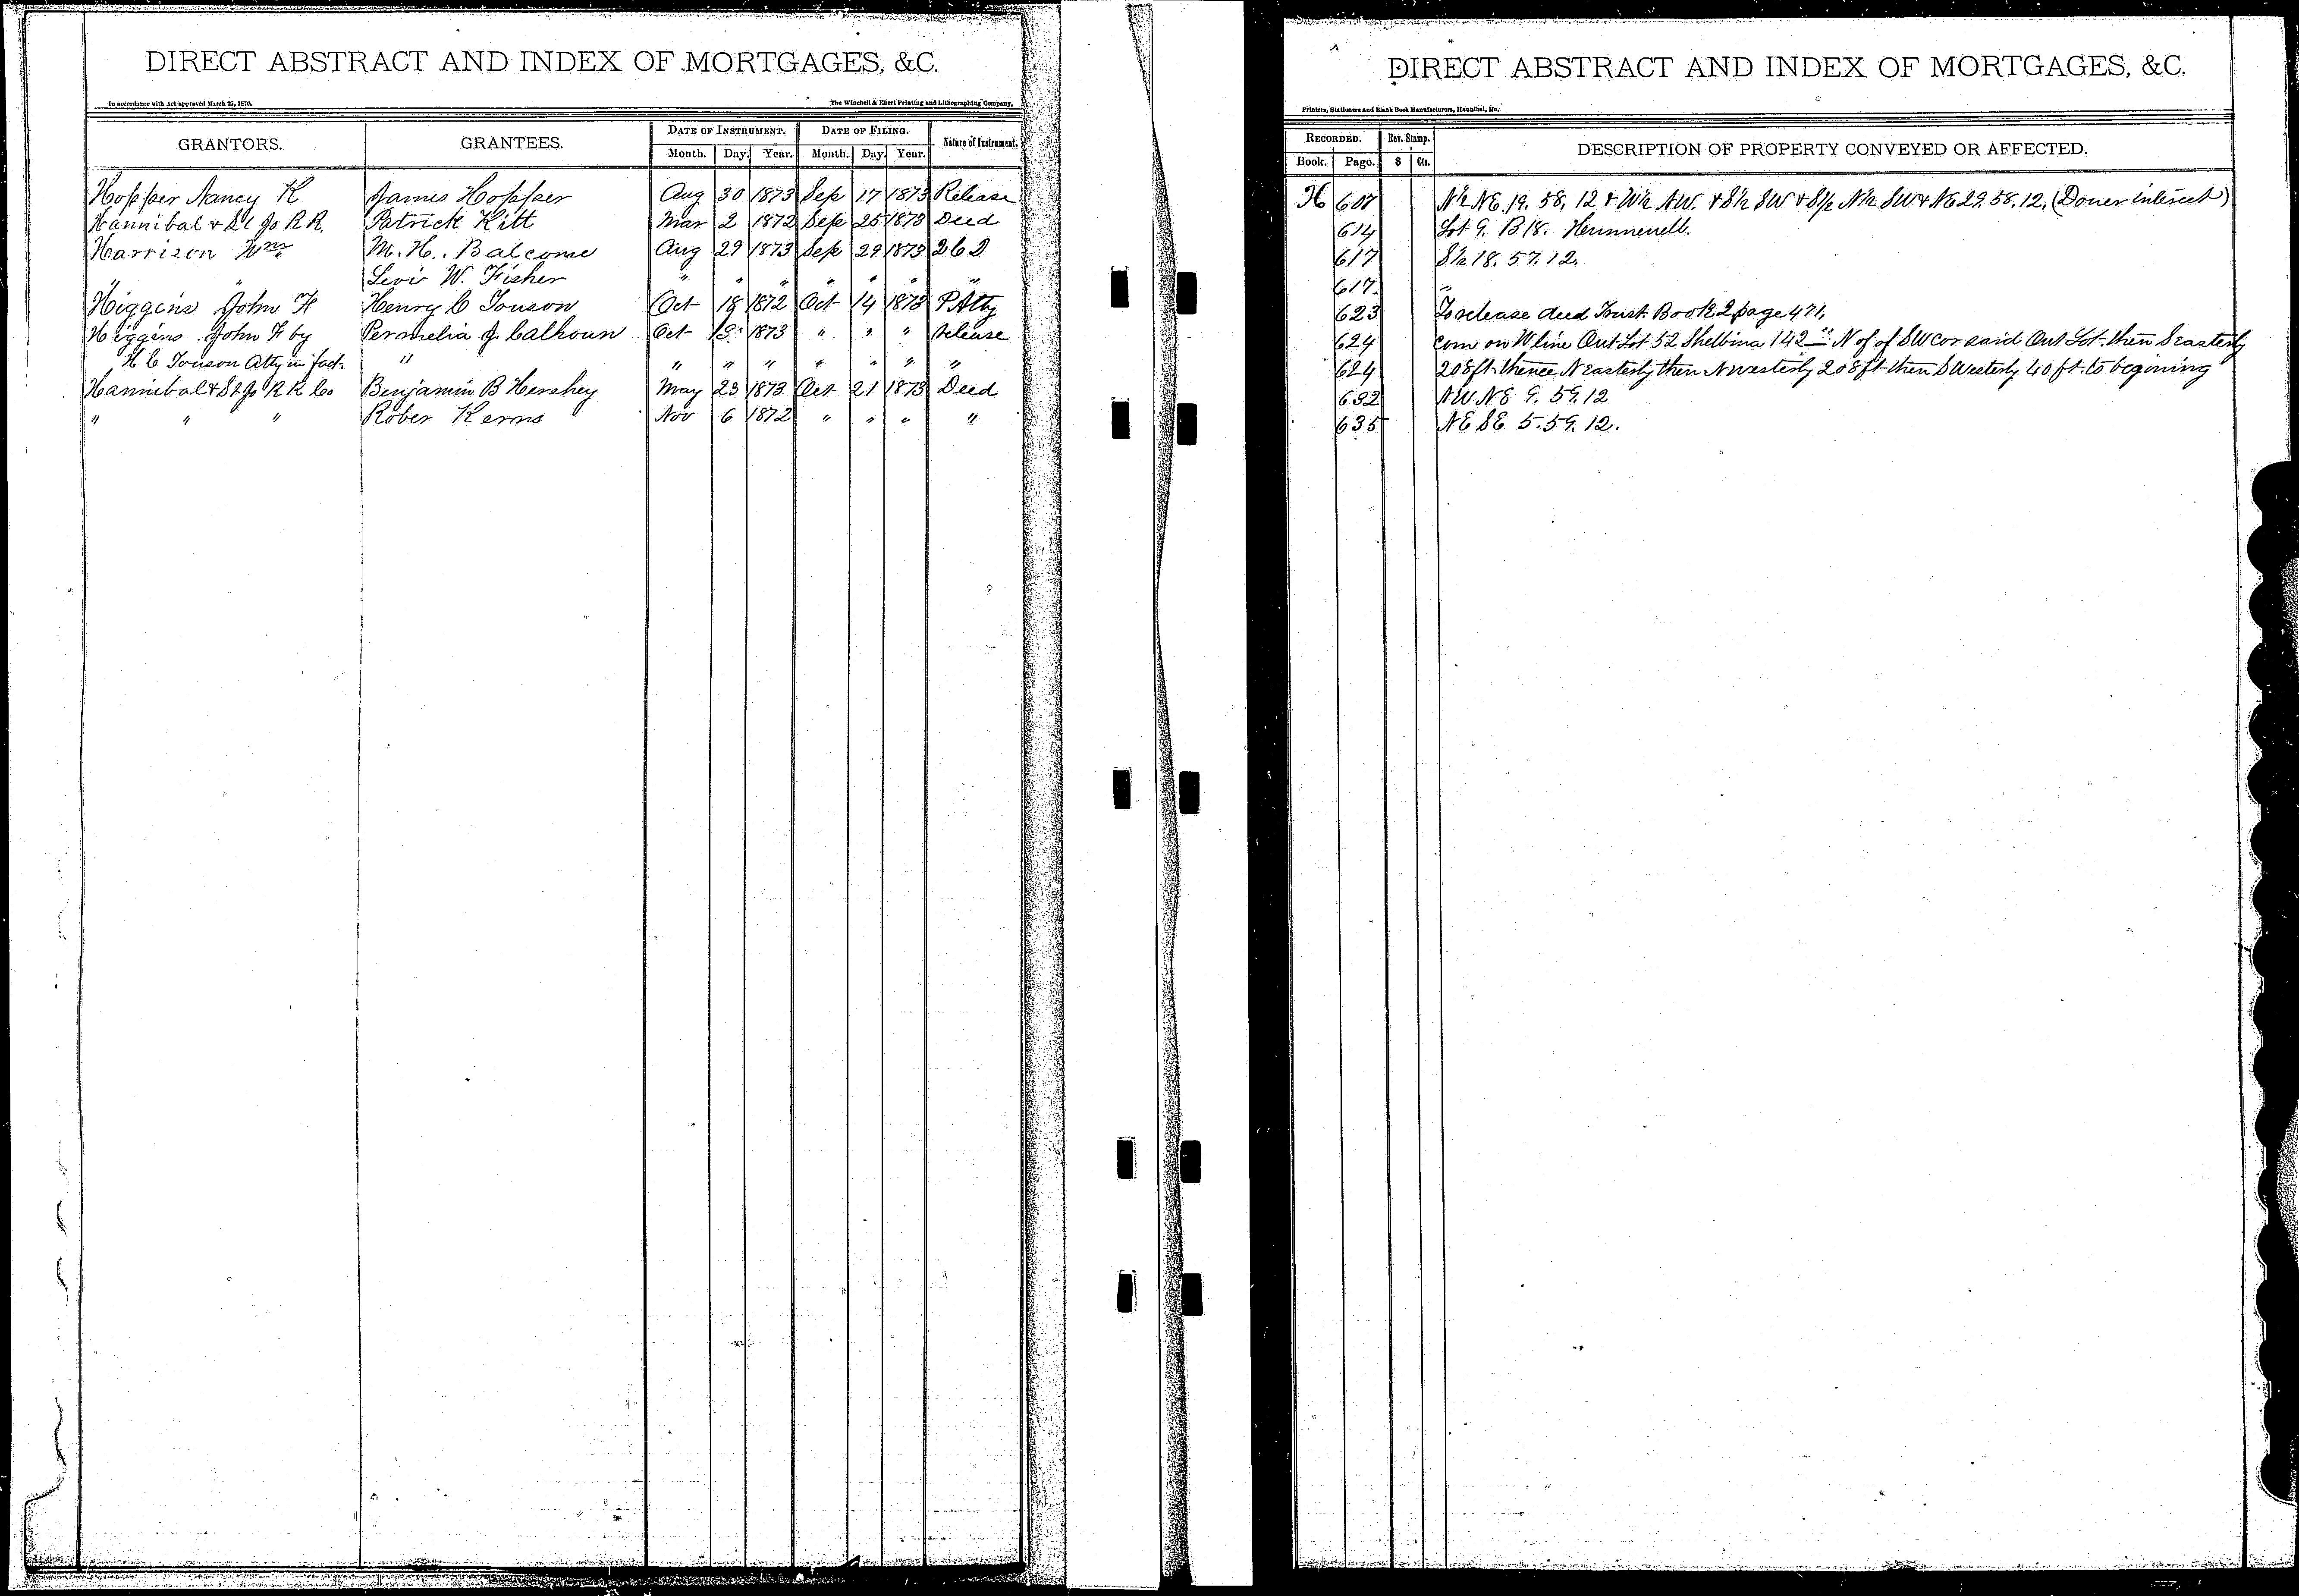 DIRECT ABSTRACT AND INDEX OF MORTGAGES, &C.
In accordance with Act approved March 25, 1870. The Winchell & Ebert Printing and Lithographing Company,
GRANTORS. GRANTEES. DATE OF INSTRUMENT. DATE OF FILING. Nature of Instrument.
Month. Day. Year. Month. Day. Year.
Hopper Nancy K James Hopper Aug 30 1873 Sep 17 1873 Release
Hannibal & St Jo R R. Patrick Kitt Mar 2 1872 Sep 25 1873 Deed
Harrison Wm M. H. Balcome Aug 29 1873 Sep 29 1873 2 6 D
" " Levi W. Fisher " " " " " " "
Higgins John F Henry C Touson Oct 19 1872 Oct 14 1873 P Atty
Higgins John F by Permelia J. Calhoun Oct 13 1873 " " " release
H C Touson Atty in fact. " " " " " " " "
Hannibal & St Jo R R Co Benjamin B Hershey May 23 1873 Oct 21 1873 Deed
" " " Rober Kerns Nov 6 1872 " " " "
DIRECT ABSTRACT AND INDEX OF MORTGAGES, &C.
Printers, Stationers and Blank Book Manufacturers, Hannibal, Mo.
RECORDED. Rev. Stamp. DESCRIPTION OF PROPERTY CONVEYED OR AFFECTED.
Book. Page. $ Cts.
H 607 N½ NE. 19. 58. 12 & W½ NW. & S½ SW & S½ N½ SW & NE 29. 58. 12. (Doner interest)
614 Lot 9. B 18. Hunnewell.
617 S½ 18. 57. 12.
617. "
623 To release deed Trust Book 2 page 471.
624 com on W line Out Lot 52 Shelbina 142 N of of SW cor said Out Lot. then S easterly
624 208 ft. thence N easterly then N westerly 208 ft then S Westerly 40 ft. to begining
632 NW NE 9. 59. 12
635 NE SE 5. 59. 12.